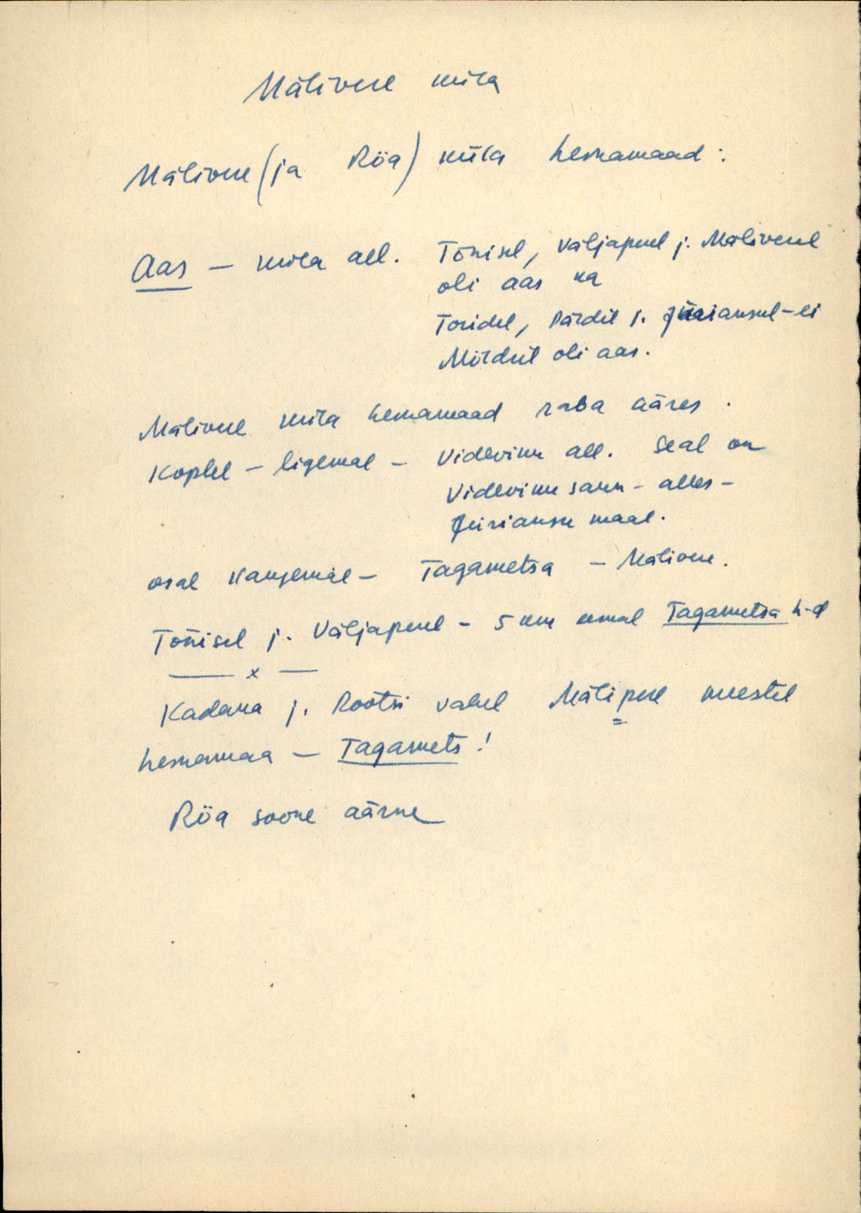 Mälivere küla
Mälivere (ja Röa) küla heinamaad:
Aas – küla all. Tõnisel, Väljaperel j. Mäliverel
oli aas ka
Toridel, Pärdil j. Jüriansul – ei
Möldril oli aas.
Mälivere küla heinamaad raba ääres.
Koplel – ligemal – Videviku all. Seal on
Videviku saun – alles –
Jüriansu maal.
osal kaugemal – Tagametsa – Mälivere.
Tõnisel j. Väljaperel – 5 km eemal Tagametsa h-d
— x —
Kadaka j. Rootsi vahel Mälipere meestel
heinamaa – Tagamets!
Röa soone äärne